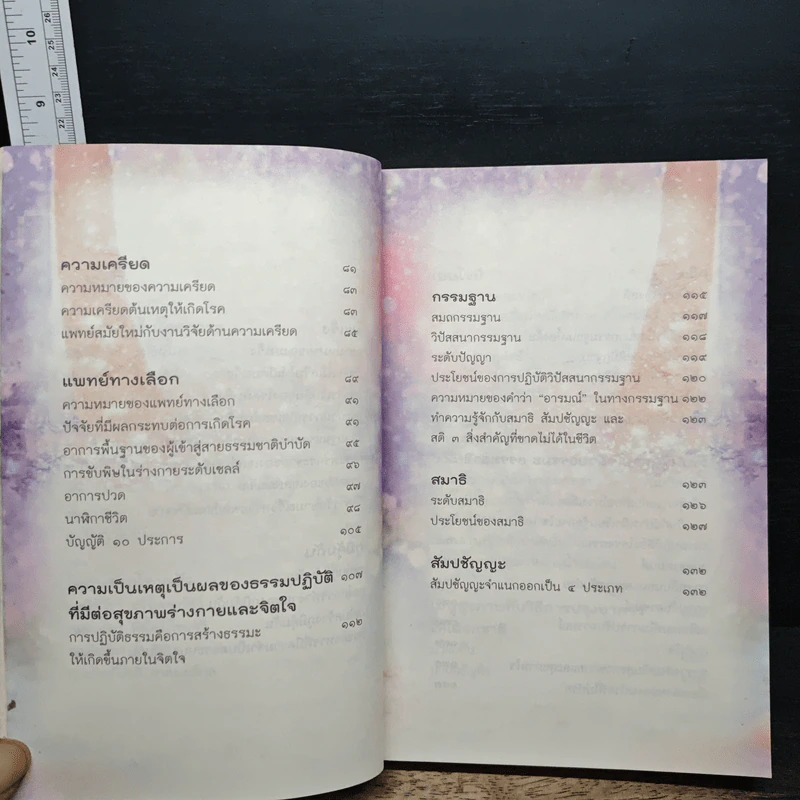 10
26
25
24
9
23
22
ความเครียด ๘๑
ความหมายของความเครียด ๘๓
ความเครียดต้นเหตุให้เกิดโรค ๘๓
แพทย์สมัยใหม่กับงานวิจัยด้านความเครียด ๘๕
แพทย์ทางเลือก ๘๙
ความหมายของแพทย์ทางเลือก ๙๑
ปัจจัยที่มีผลกระทบต่อการเกิดโรค ๙๑
อาการพื้นฐานของผู้เข้าสู่สายธรรมชาติบำบัด ๙๕
การขับพิษในร่างกายระดับเซลล์ ๙๖
อาการปวด ๙๗
นาฬิกาชีวิต ๙๘
บัญญัติ ๑๐ ประการ ๑๐๕
ความเป็นเหตุเป็นผลของธรรมปฏิบัติ ๑๐๗
ที่มีต่อสุขภาพร่างกายและจิตใจ
การปฏิบัติธรรมคือการสร้างธรรมะ ๑๑๒
ให้เกิดขึ้นภายในจิตใจ
กรรมฐาน ๑๑๕
สมถกรรมฐาน ๑๑๗
วิปัสสนากรรมฐาน ๑๑๘
ระดับปัญญา ๑๑๙
ประโยชน์ของการปฏิบัติวิปัสสนากรรมฐาน ๑๒๐
ความหมายของคำว่า “อารมณ์” ในทางกรรมฐาน ๑๒๒
ทำความรู้จักกับสมาธิ สัมปชัญญะ และ ๑๒๓
สติ ๓ สิ่งสำคัญที่ขาดไม่ได้ในชีวิต
สมาธิ ๑๒๓
ระดับสมาธิ ๑๒๖
ประโยชน์ของสมาธิ ๑๒๗
สัมปชัญญะ ๑๓๒
สัมปชัญญะจำแนกออกเป็น ๔ ประเภท ๑๓๒